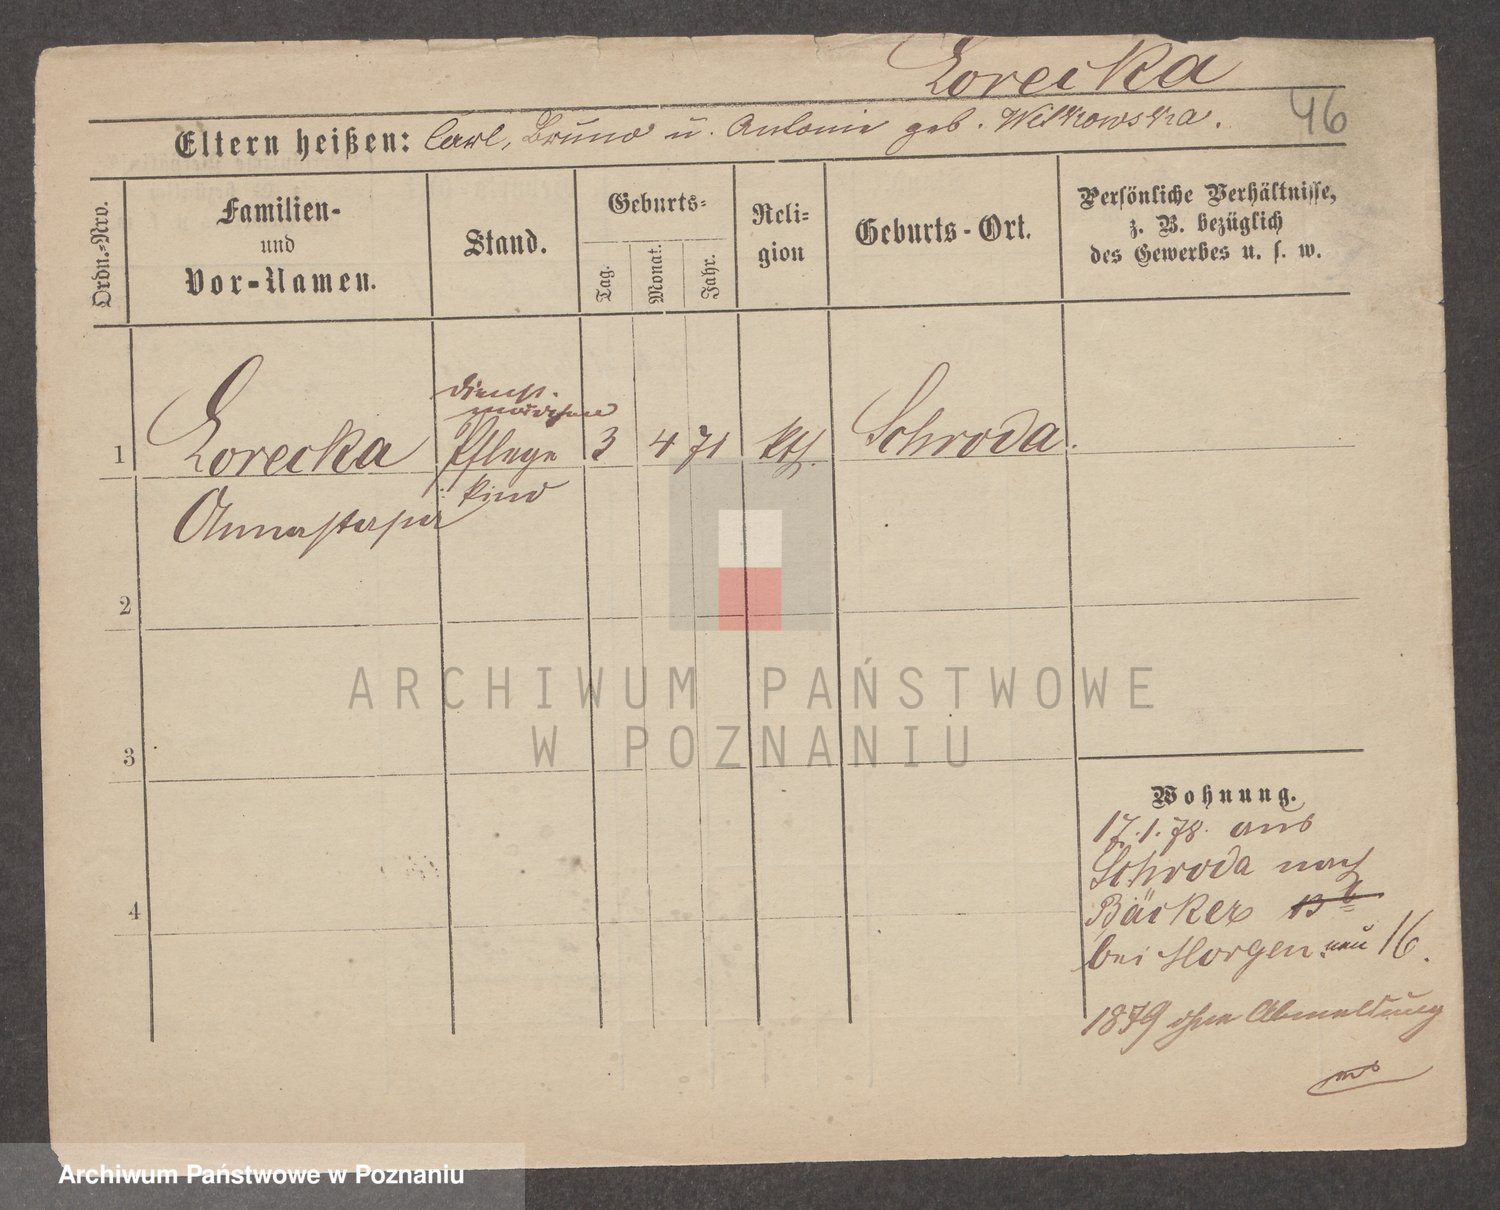 Lorecka
46
Eltern heißen: Carl, Bruno u. Antonie geb. Witkowska.
Ordn.-Nro.
Familien-
und
Vor-Namen.
Stand.
Geburts-
Tag.
Monat.
Jahr.
Reli-
gion
Geburts-Ort.
Persönliche Verhältnisse,
z. B. bezüglich
des Gewerbes u. s. w.
dienst.
mädchen
1 Lorecka Pflege 3 4 71 kth. Schroda.
Annastasia kind
2
3
4
Wohnung.
17.1.78. aus
Schroda nach
Bäcker 13b
bei Horgen neu 16.
1879 ohne Abmeldung
ARCHIWUM PAŃSTWOWE
W POZNANIU
Archiwum Państwowe w Poznaniu